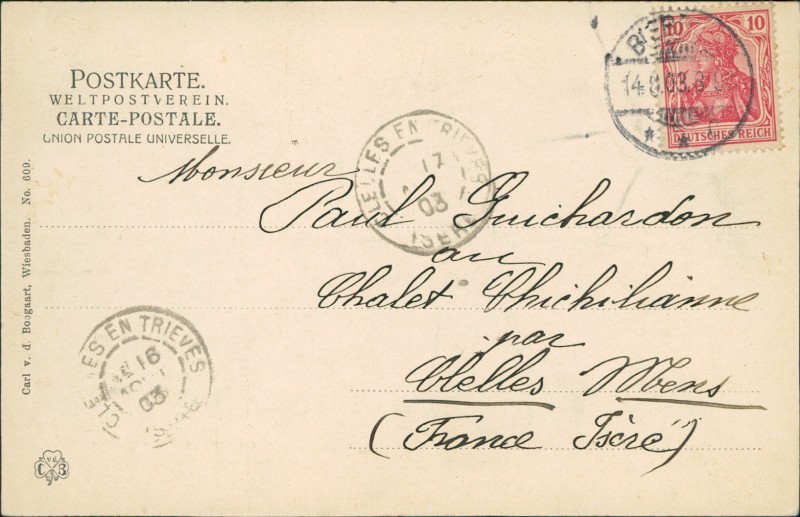 POSTKARTE.
WELTPOSTVEREIN.
CARTE-POSTALE.
UNION POSTALE UNIVERSELLE.
10 10
DEUTSCHES REICH
14.8.03.8-9
CLELLES EN TRIEVES
17
03
ISERE
Monsieur
Paul Guichardon
au
Chalet Chichilianne
par
Clelles Mens
(France Isère)
CLELLES EN TRIEVES
16
03
Carl v. d. Boogaart, Wiesbaden. No. 609.
C v.d. B